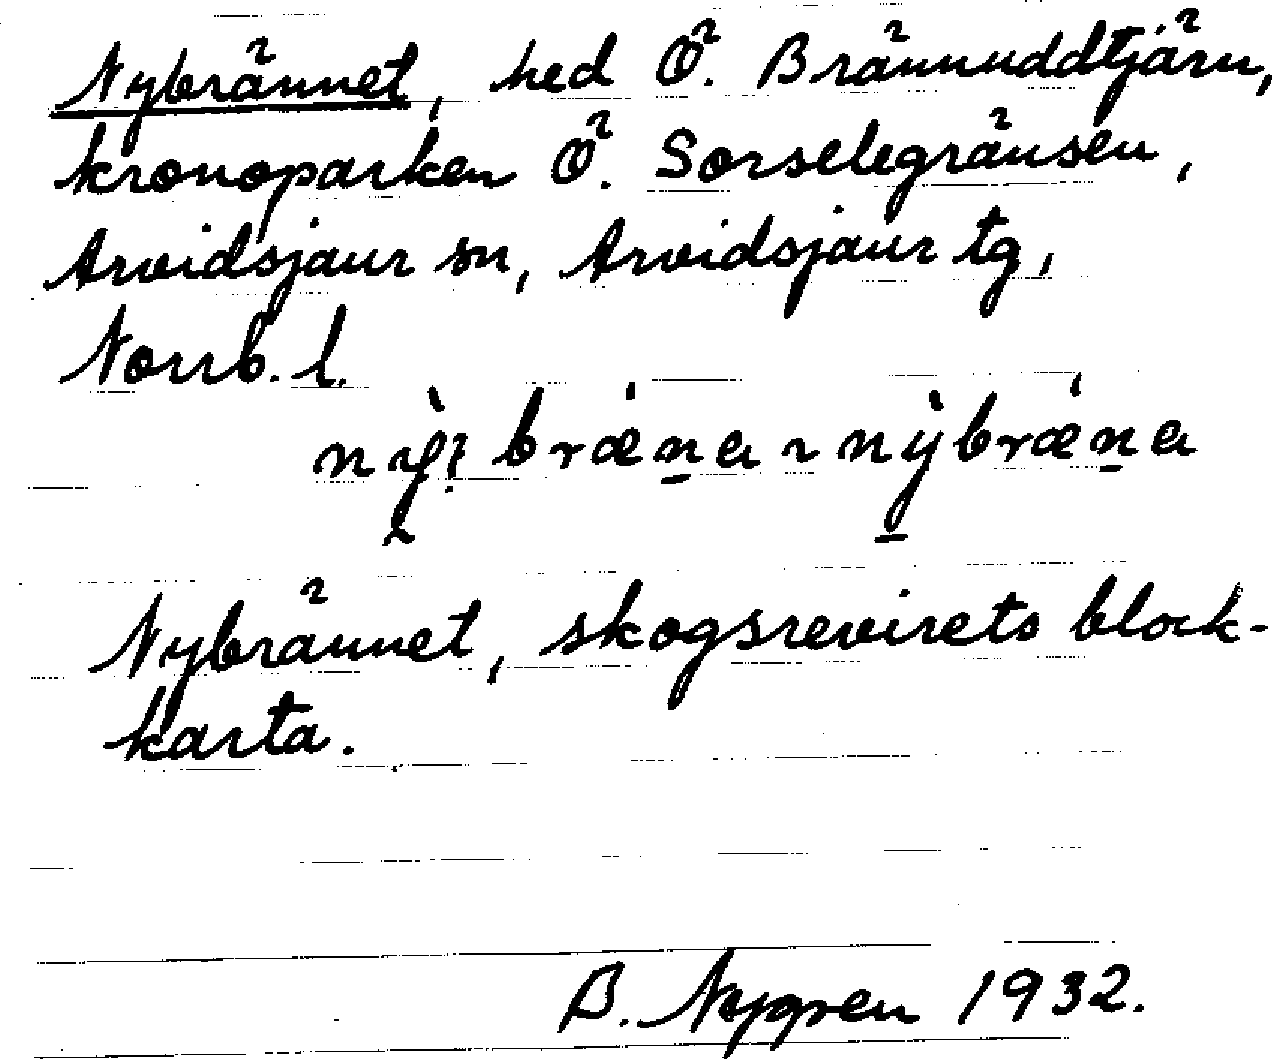 Nybrännet, hed Ö. Brännuddtjärn,
kronoparken Ö. Sorselegränsen,
Arvidsjaur sn, Arvidsjaur tg,
Norrb. l.
Nybrännet, skogsrevirets block-
karta.
B. Nygren 1932.